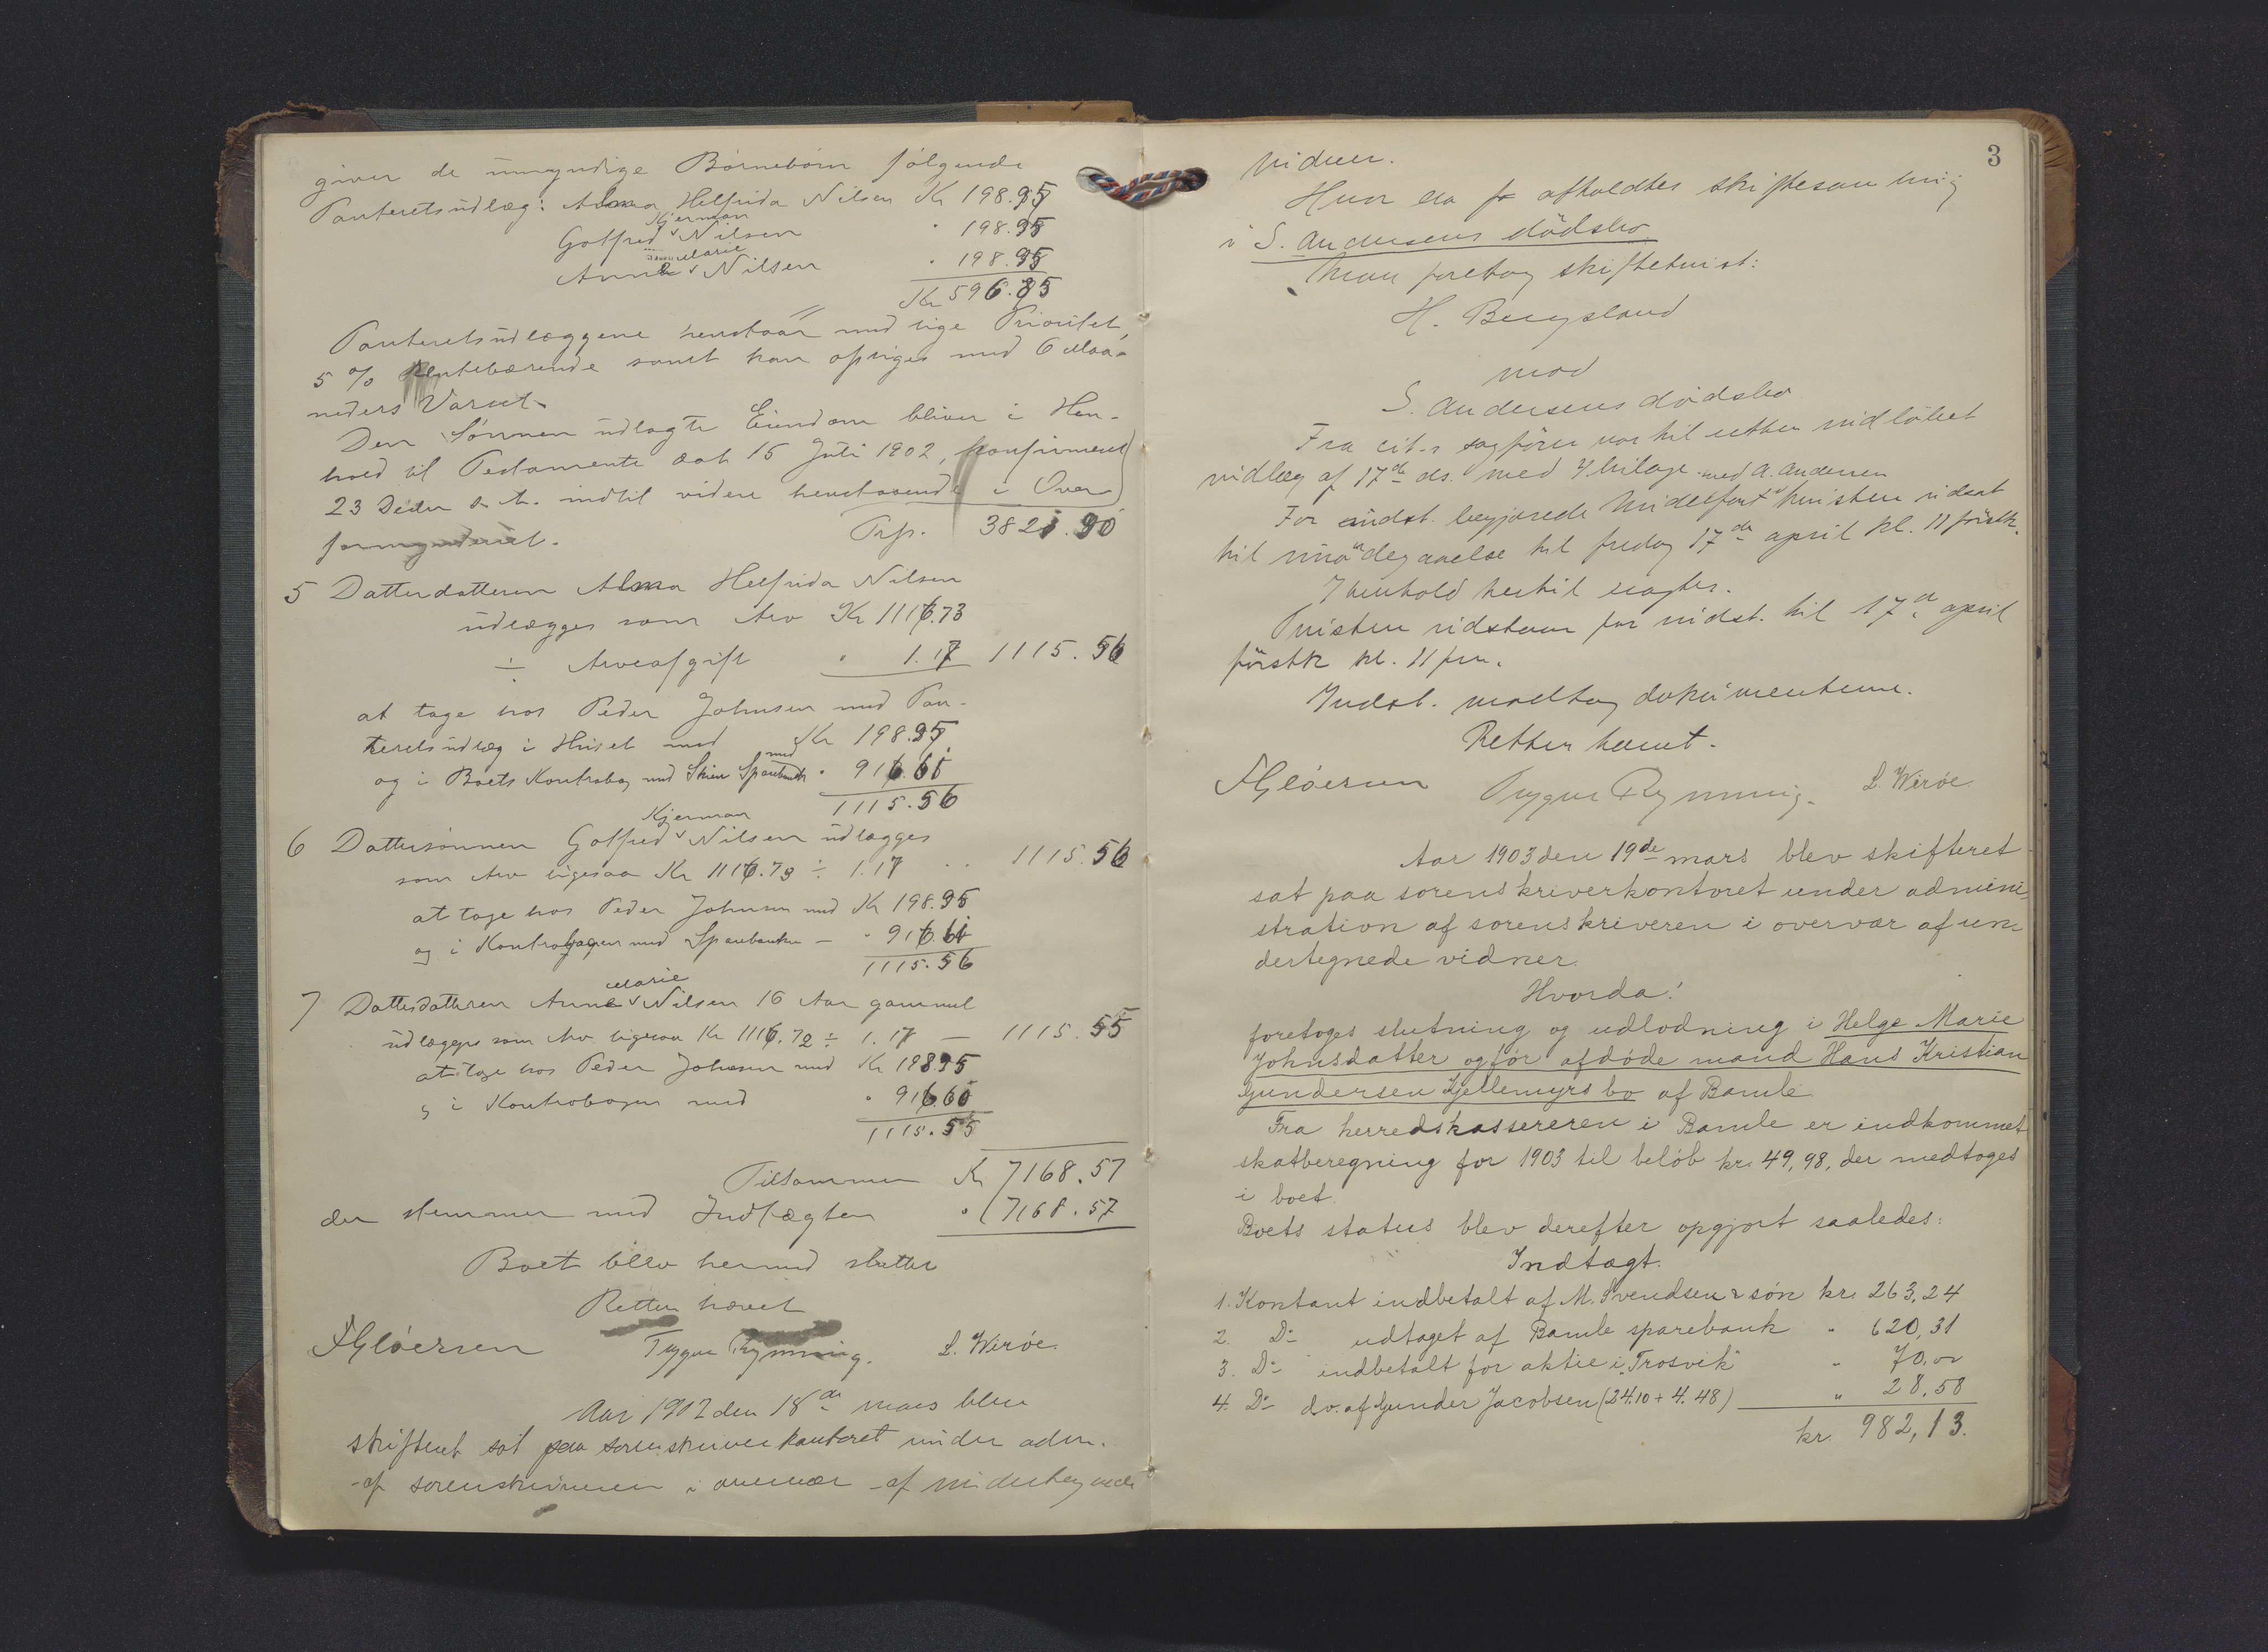 giver de umyndige Børnebørn følgende
Panteretsudlæg: Alma Helfrida Nilsen Kr 198.95
Kjerman
Golfred ˅ Nilsen " 198.95
Marie
Anne ˅ Nilsen " 198.95
Kr 596.85
Panteretsudlæggene henstaar med lige Prioritet,
5 % Rentebærende samt kan opsiges med 6 Maa-
neders Varsel.
Den Sønnen udlagte Eiendom bliver i Hen-
hold til Testamente dat 15 Juli 1902, konfirmeret
23 Decbr s. A. indtil videre henstaaende i Over-
formynderiet.
Trp. 3821.90
5 Datterdatteren Alma Helfrida Nilsen
udlægges som Arv Kr 1116.73
÷ Arveafgift " 1.17 1115.56
at tage hos Peder Johnsen med Pan-
teretsudlæg i Huset med Kr 198.95
og i Boets Kontrabog med Skien Sparebank med " 916.61
1115.56
Kjerman
6 Dattersønnen Golfred ˅ Nilsen udlægges
som Arv ligesaa Kr 1116.73 ÷ 1.17 " 1115.56
at tage hos Peder Johnsen med Kr 198.95
og i Kontrabogen med Sparebanken — " 916.61
1115.56
Marie
7 Datterdatteren Anne ˅ Nilsen 16 Aar gammel
udlægges som Arv ligesaa Kr 1116.72 ÷ 1.17 — 1115.55
at tage hos Peder Johnsen med Kr 198.95
og i Kontrabogen med " 916.60
1115.55
Tilsammen Kr 7168.57
der stemmer med Indtægten " 7168.57
Boet blev hermed sluttet
Retten hævet
F Gløersen Trygve Rynning. L. Wirøe.
Aar 1902 den 18de mars blev
skifteret sat paa sorenskriverkontoret under adm.
af sorenskriveren i overvær af undertegnede
3
vidner.
Hvor da afholdtes skiftesamling
i S. Andersens dødsbo
Man foretog skiftetvist:
H. Bergsland
mod
S. Andersens dødsbo
Fra cit.s sagfører var til retten indløbet
indlæg af 17de ds. med 4 bilage. med A. Andersen
For indst. begjærede Midelfart tvisten udsat
til imødegaaelse til fredag 17de april kl. 11 førstk.
I henhold hertil eragtes.
Tvisten udstaar for indst. til 17de april
førstk kl. 11 fm.
Indst. modtog dokumenterne.
Retten hævet.
F Gløersen Trygve Rynning. L. Wirøe
Aar 1903 den 19de mars blev skifteret
sat paa sorenskriverkontoret under admini-
stration af sorenskriveren i overvær af un-
dertegnede vidner.
Hvorda!
foretoges slutning og udlodning i Helge Marie
Johnsdatter og før afdøde mand Hans Kristian
Gundersen Kjellemyrs bo af Bamle.
Fra herredskassereren i Bamle er indkommet
skatberegning for 1903 til beløb kr. 49,98, der medtoges
i boet.
Boets status blev derefter opgjort saaledes:
Indtægt.
1. Kontant indbetalt af M. Svendsen & søn kr. 263,24
2. Do udtaget af Bamle sparebank " 620,31
3. Do indbetalt for aktie i „Trosvik" " 70,00
4. Do do. af Gunder Jacobsen (24.10 + 4.48) " 28,58
kr. 982,13.